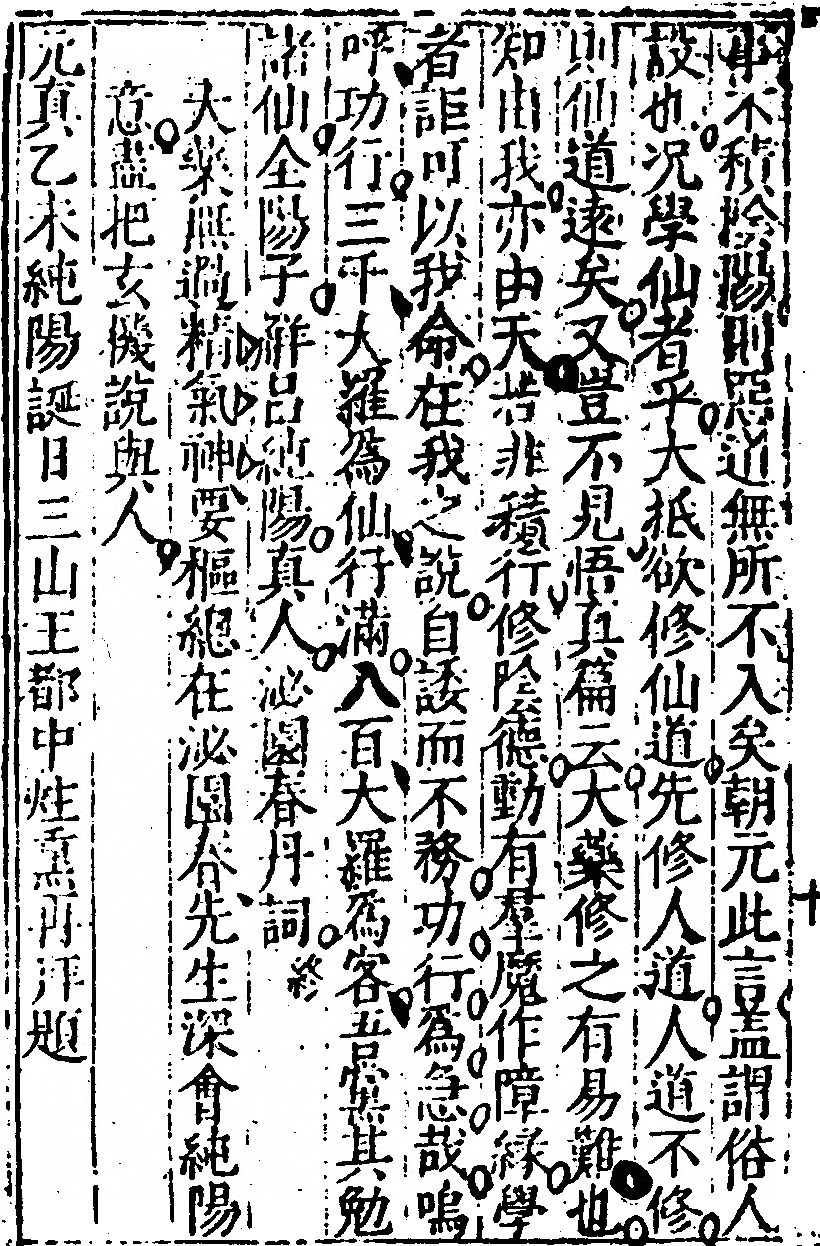 事不積陰隲則惡道無所不入矣朝元此言盖謂俗人
設也况學仙者乎大抵欲修仙道先修人道人道不修
則仙道遠矣又豈不見悟真篇云大藥修之有易難也
知由我亦由天若非積行修陰德動有羣魔作障緣學
者詎可以我命在我之說自諉而不務功行爲急哉嗚
呼功行三千大羅爲仙行滿八百大羅爲客吾黨其勉
諸仙全陽子觧呂純陽真人沁園春丹詞終
大藥無過精氣神要樞緫在沁園春先生深會純陽
意盡把玄機說與人
元真乙未純陽誕日三山王都中炷熏再拜題